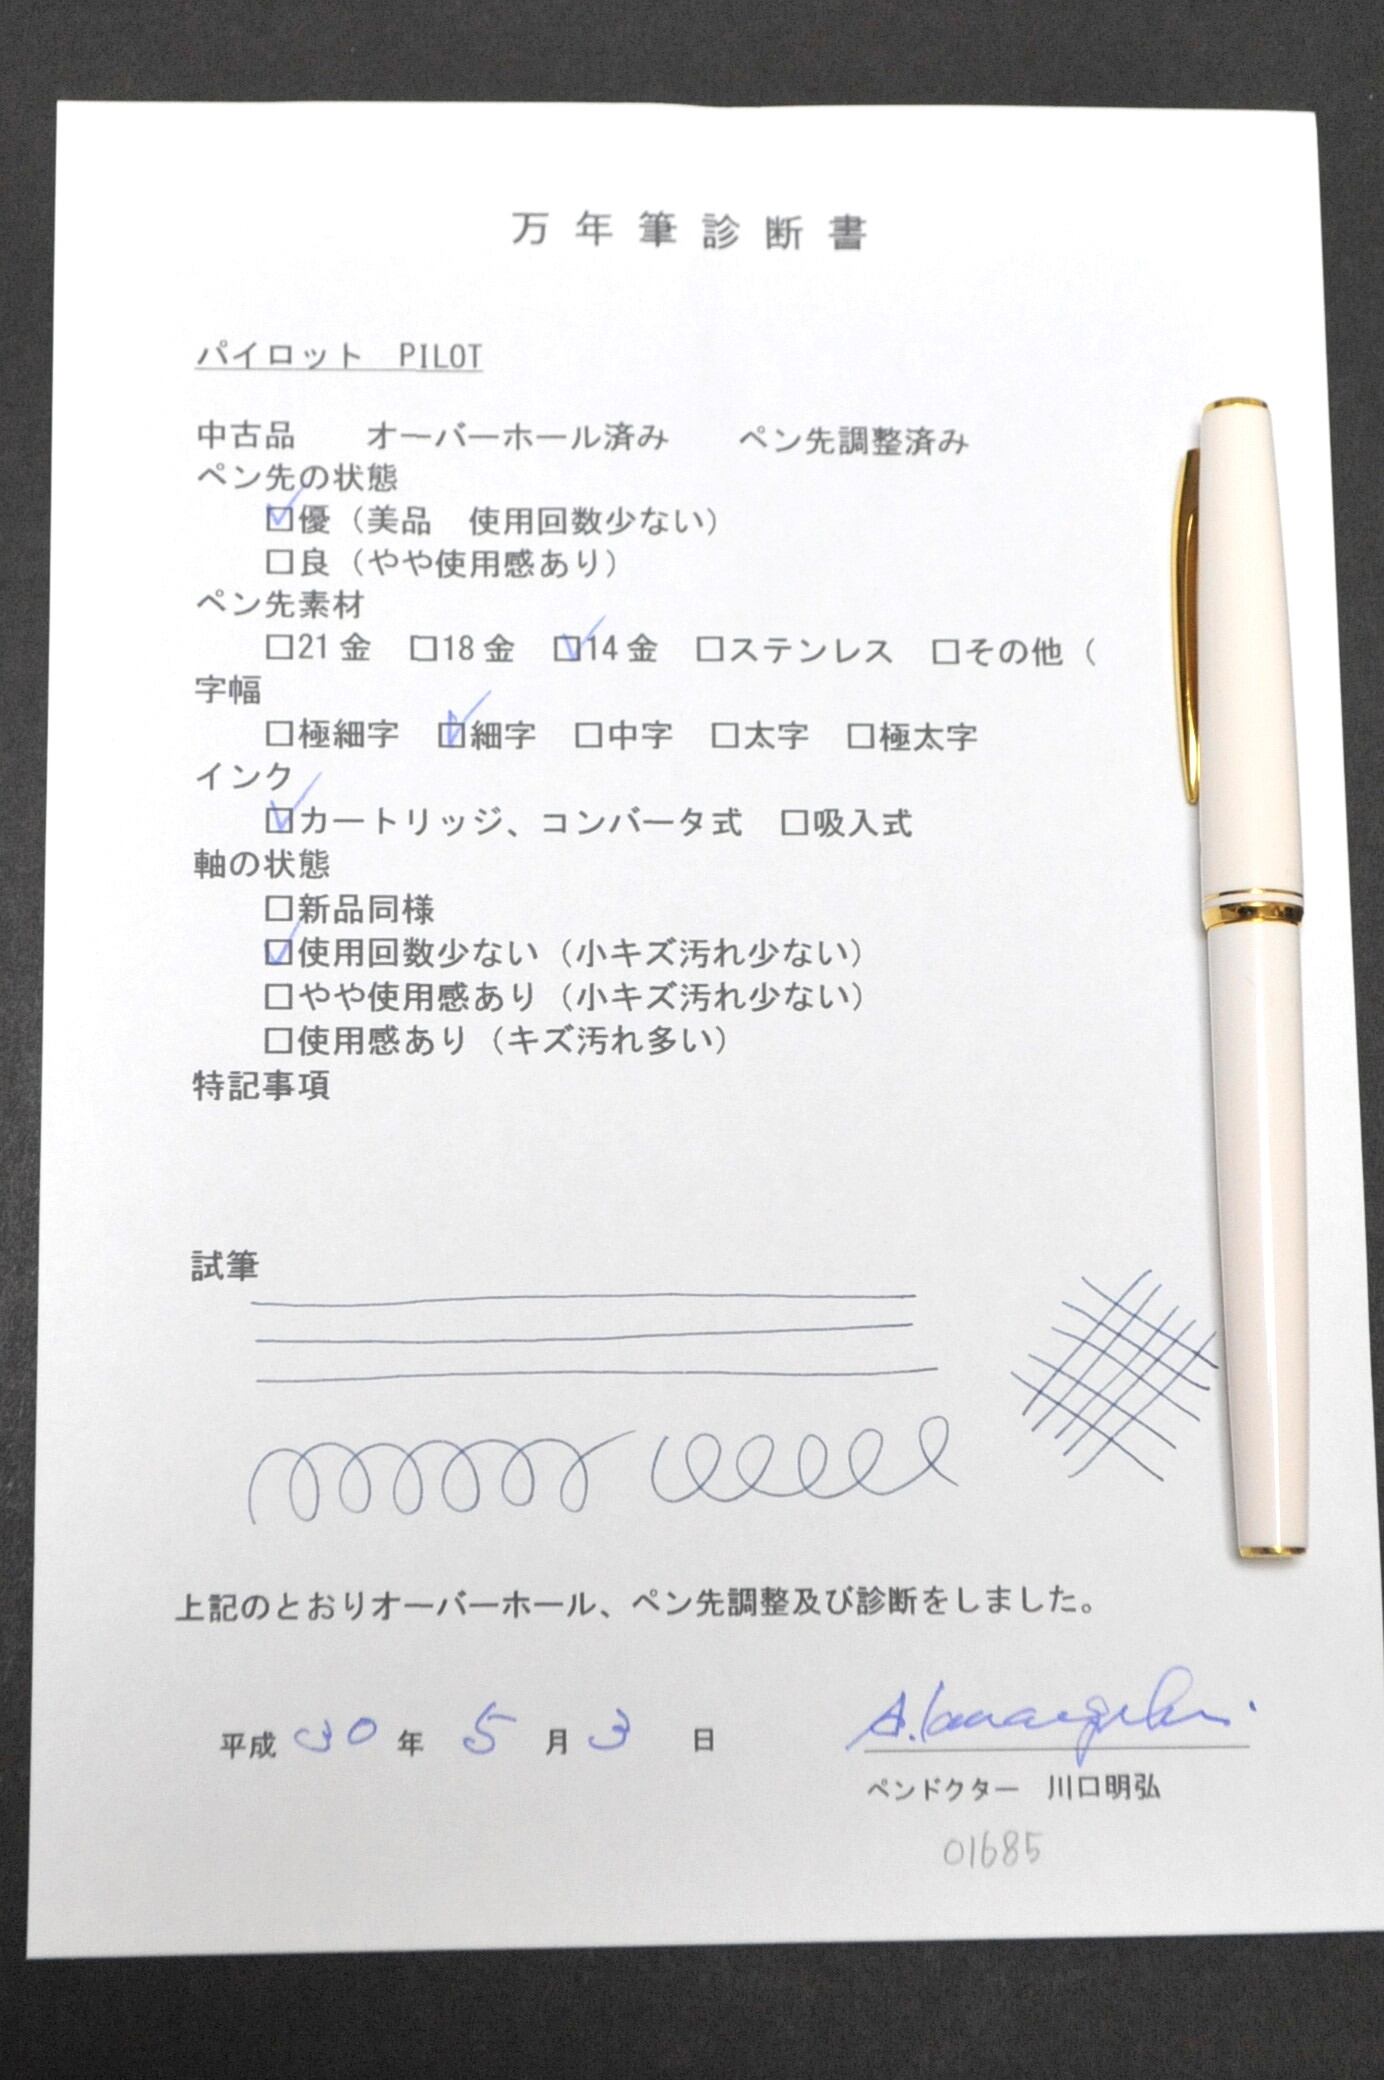 万年筆診断書
パイロット　PILOT
中古品　　オーバーホール済み　　ペン先調整済み
ペン先の状態
☑優（美品　使用回数少ない）
□良（やや使用感あり）
ペン先素材
□21金　□18金　☑14金　□ステンレス　□その他（
字幅
□極細字　☑細字　□中字　□太字　□極太字
インク
☑カートリッジ、コンバータ式　□吸入式
軸の状態
□新品同様
☑使用回数少ない（小キズ汚れ少ない）
□やや使用感あり（小キズ汚れ少ない）
□使用感あり（キズ汚れ多い）
特記事項
試筆
上記のとおりオーバーホール、ペン先調整及び診断をしました。
平成 30 年 5 月 3 日
ペンドクター　川口明弘
01685